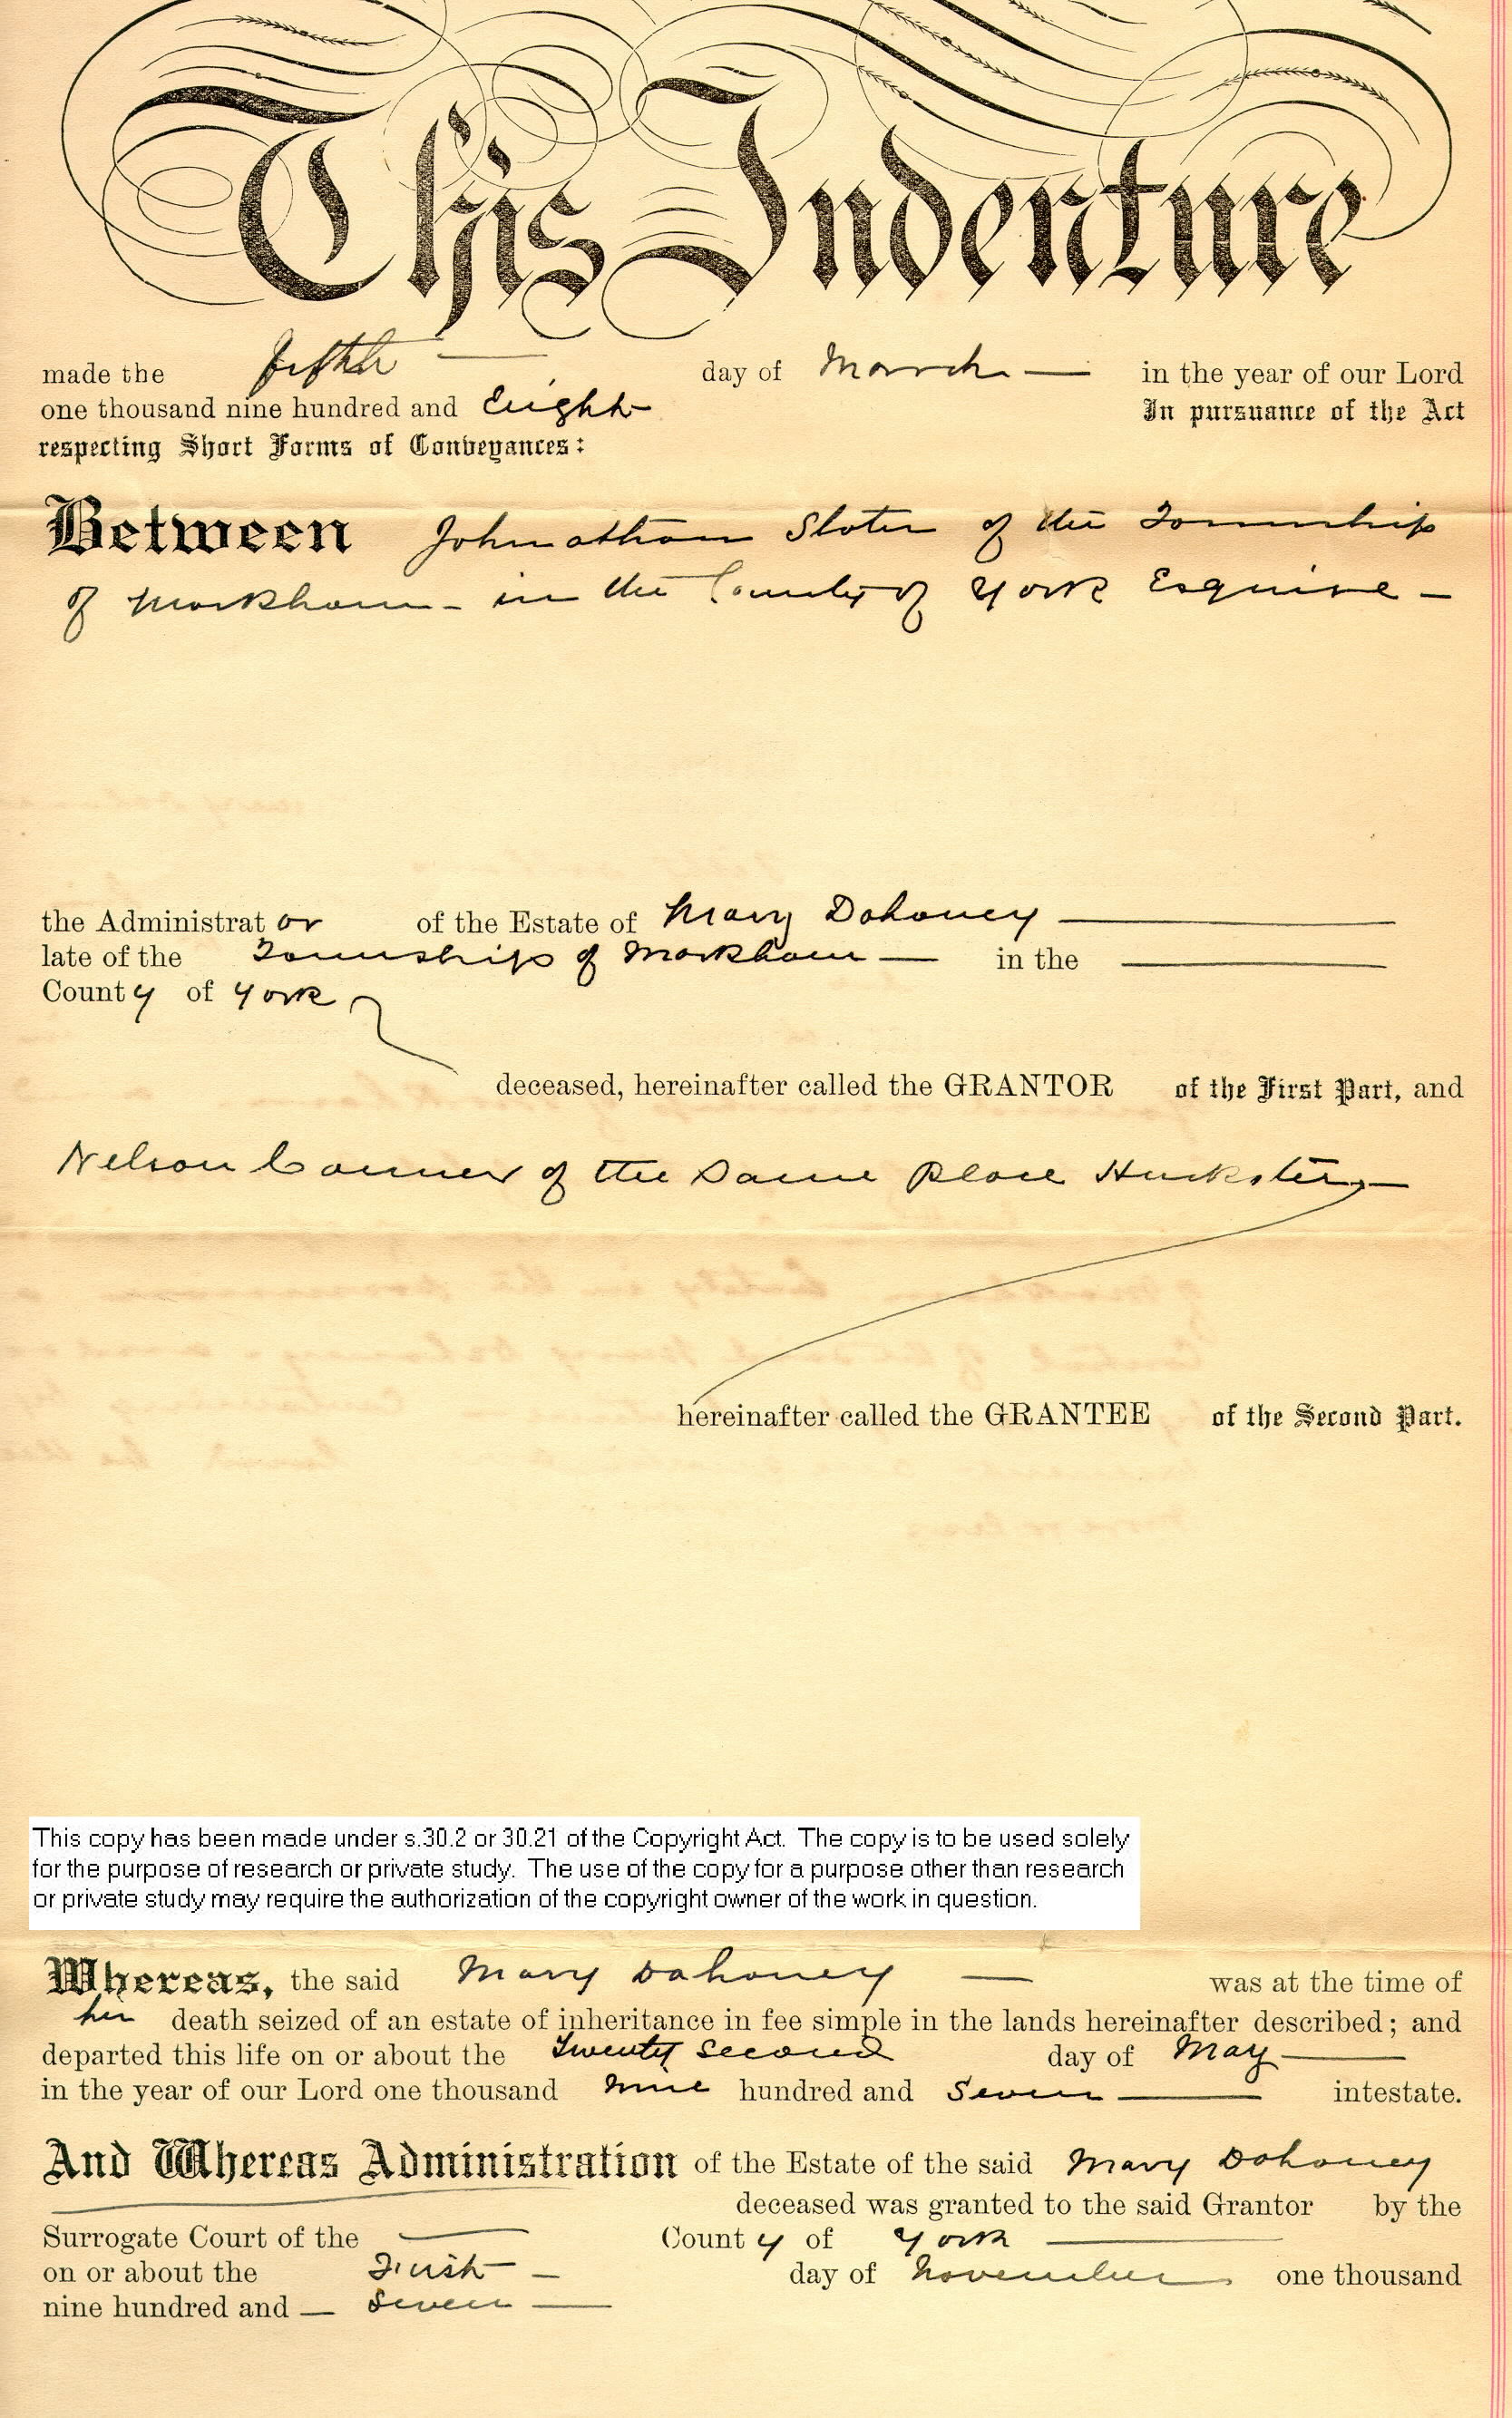 This Indenture
made the fifth day of March in the year of our Lord
one thousand nine hundred and Eight In pursuance of the Act
respecting Short Forms of Conveyances:
Between Johnathan Slater of the Township
of Markham - in the County of York Esquire -
the Administrator of the Estate of Mary Dahoney
late of the Township of Markham in the
County of York
deceased, hereinafter called the GRANTOR of the First Part, and
Nelson Conner of the Same Place Huckster,
hereinafter called the GRANTEE of the Second Part.
This copy has been made under s.30.2 or 30.21 of the Copyright Act. The copy is to be used solely
for the purpose of research or private study. The use of the copy for a purpose other than research
or private study may require the authorization of the copyright owner of the work in question.
Whereas, the said Mary Dahoney — was at the time of
her death seized of an estate of inheritance in fee simple in the lands hereinafter described; and
departed this life on or about the Twenty Second day of May
in the year of our Lord one thousand nine hundred and Seven intestate.
And Whereas Administration of the Estate of the said Mary Dahoney
deceased was granted to the said Grantor by the
Surrogate Court of the County of York
on or about the First day of November one thousand
nine hundred and — Seven —